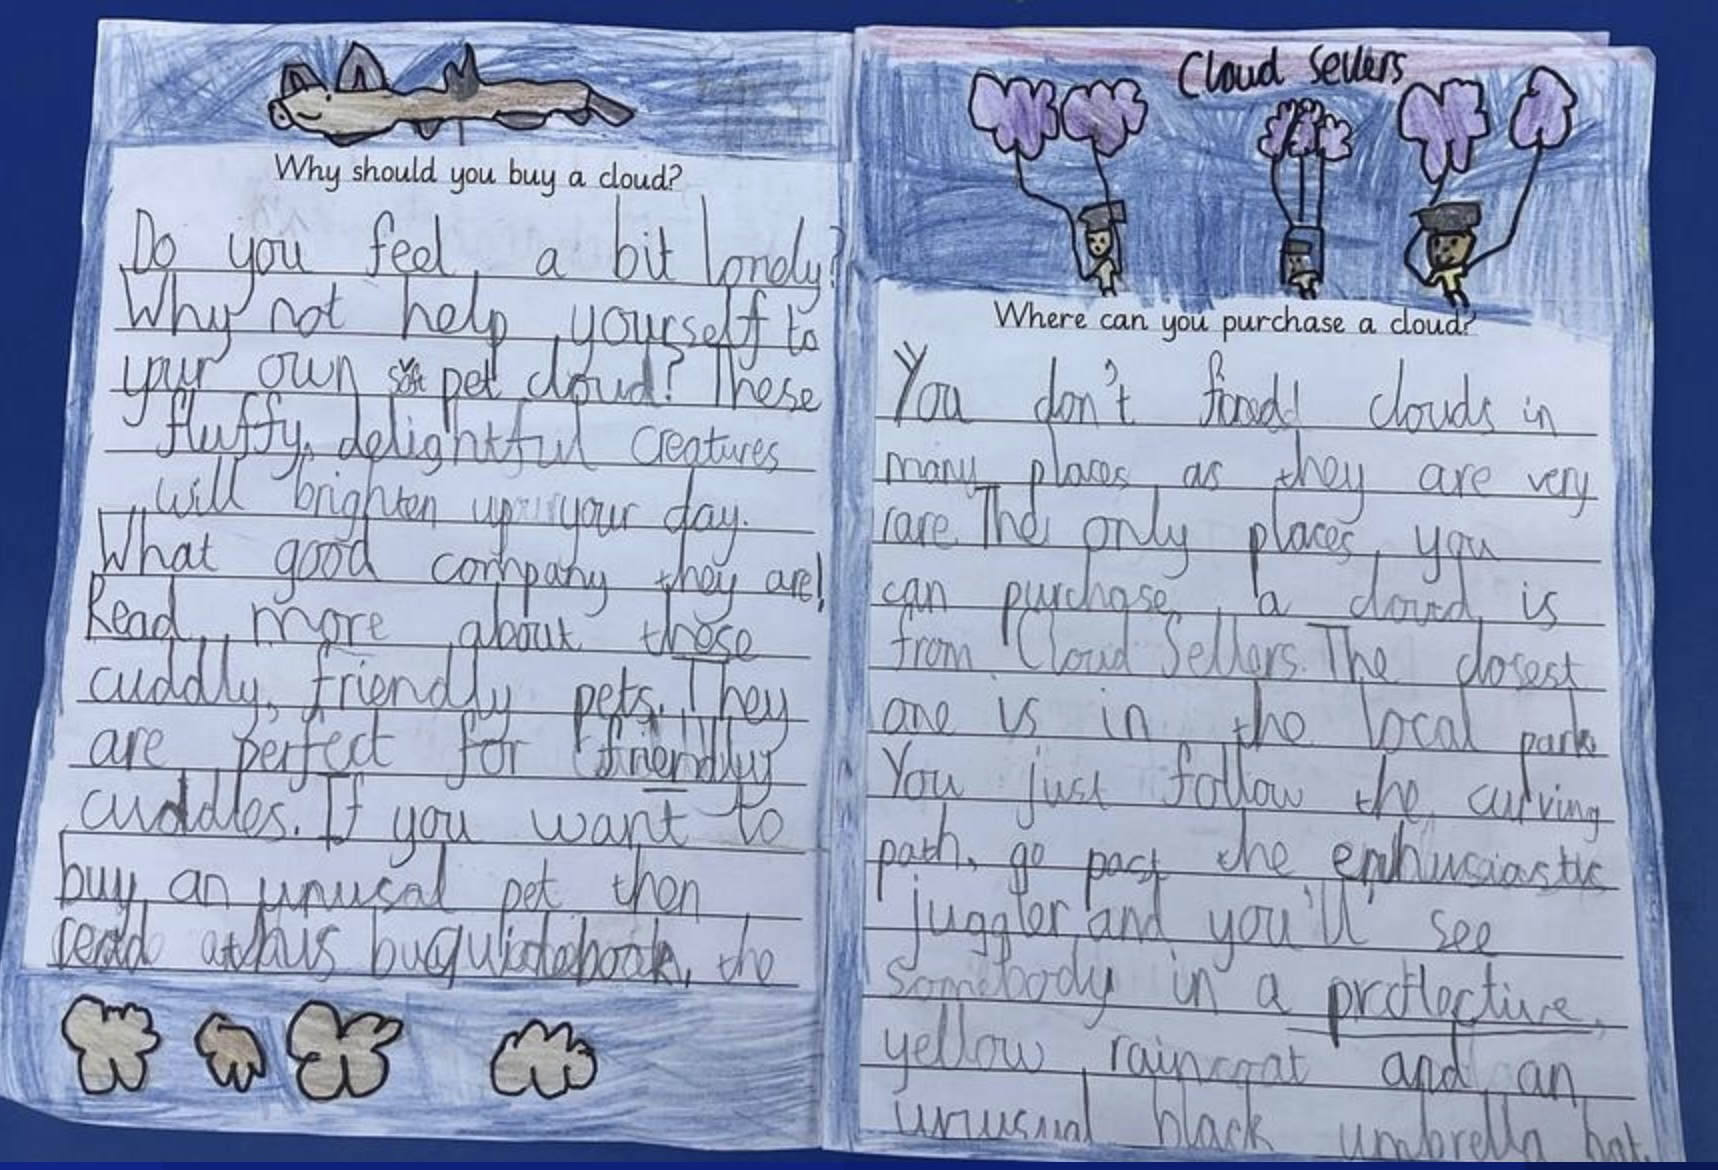 Why should you buy a cloud?
Do you feel a bit lonely?
Why not help yourself to
your own soft pet cloud? These
fluffy, delightful creatures
will brighten up your day.
What good company they are!
Read more about these
cuddly, friendly pets. They
are perfect for friendly
cuddles. If you want to
buy an unusal pet then
read this guidebook, the
Cloud Sellers
Where can you purchase a cloud?
You don't find clouds in
many places as they are very
rare. The only places you
can purchase a cloud is
from Cloud Sellers. The closest
one is in the local park
You just follow the curving
path, go past the enthusiastic
juggler and you'll see
somebody in a protective,
yellow raincoat and an
unusual black umbrella hat.